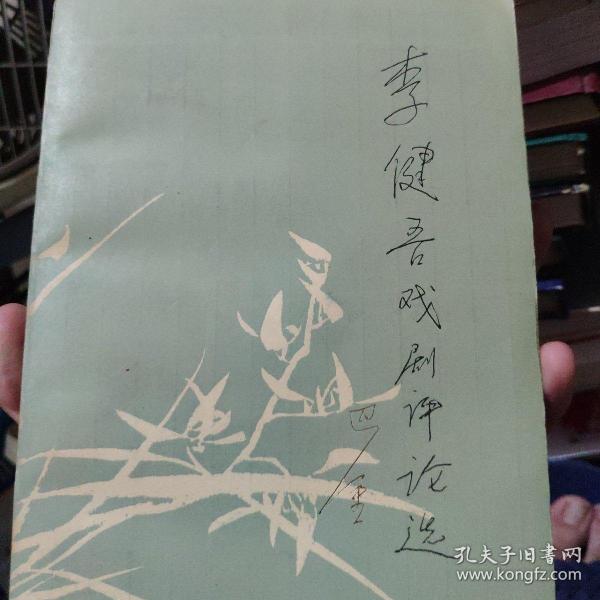 李健吾戏剧评论选
巴金
孔夫子旧書网
www.kongfz.com